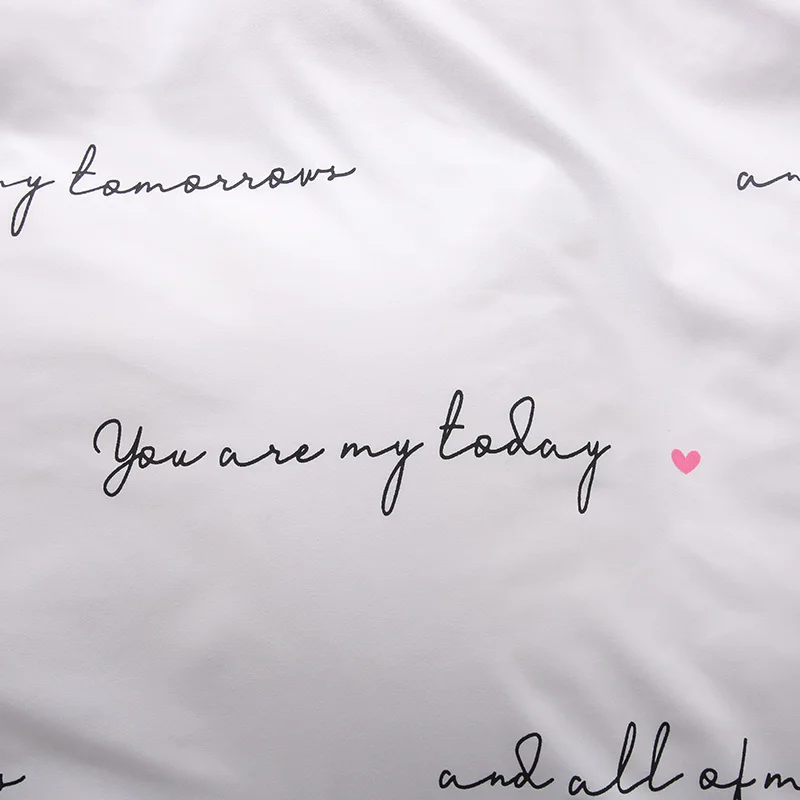 my tomorrows
You are my today
and all of m